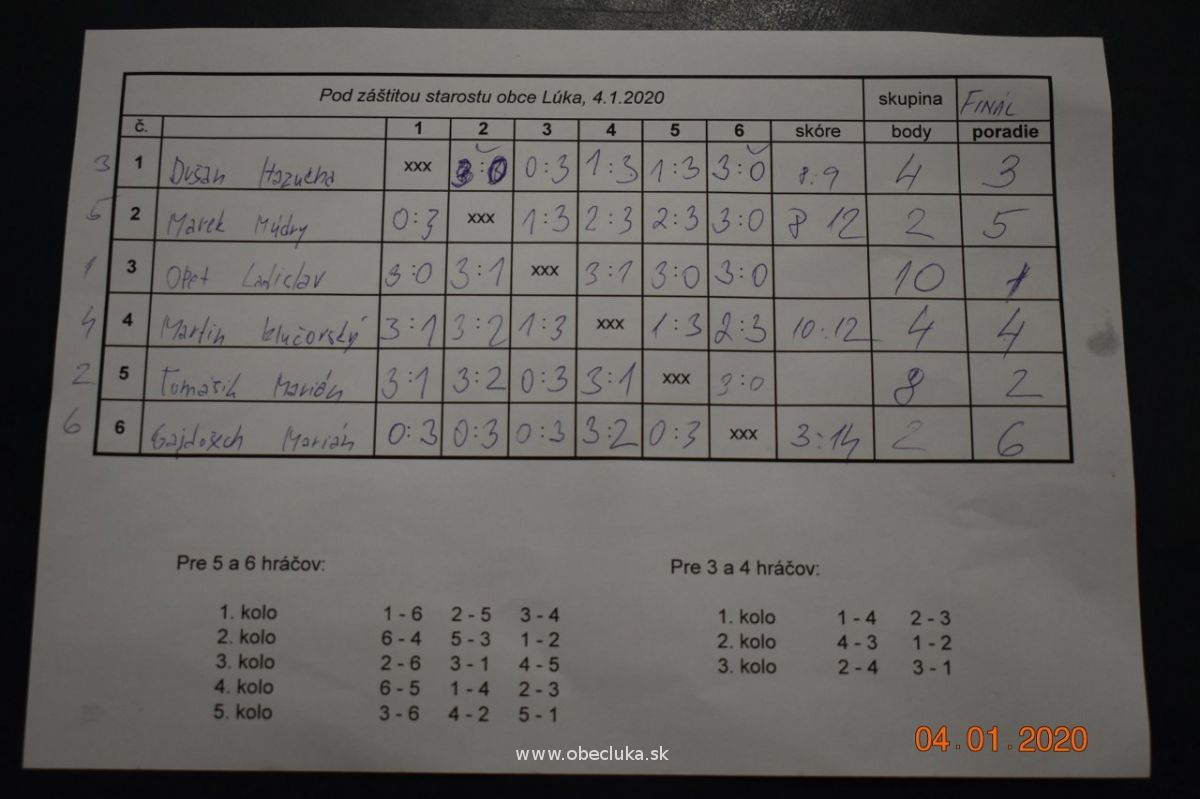 Pod záštitou starostu obce Lúka, 4.1.2020 skupina FINÁL
č. 1 2 3 4 5 6 skóre body poradie
3 1 Dušan Hazucha xxx 3:0 0:3 1:3 1:3 3:0 8:9 4 3
5 2 Marek Múdry 0:3 xxx 1:3 2:3 2:3 3:0 8 12 2 5
1 3 Opet Ladislav 3:0 3:1 xxx 3:1 3:0 3:0 10 1
4 4 Martin Klučorský 3:1 3:2 1:3 xxx 1:3 2:3 10:12 4 4
2 5 Tomášik Marián 3:1 3:2 0:3 3:1 xxx 3:0 8 2
6 6 Gajdošech Marián 0:3 0:3 0:3 3:2 0:3 xxx 3:14 2 6
Pre 5 a 6 hráčov: Pre 3 a 4 hráčov:
1. kolo 1 - 6 2 - 5 3 - 4 1. kolo 1 - 4 2 - 3
2. kolo 6 - 4 5 - 3 1 - 2 2. kolo 4 - 3 1 - 2
3. kolo 2 - 6 3 - 1 4 - 5 3. kolo 2 - 4 3 - 1
4. kolo 6 - 5 1 - 4 2 - 3
5. kolo 3 - 6 4 - 2 5 - 1
04.01.2020
www.obecluka.sk